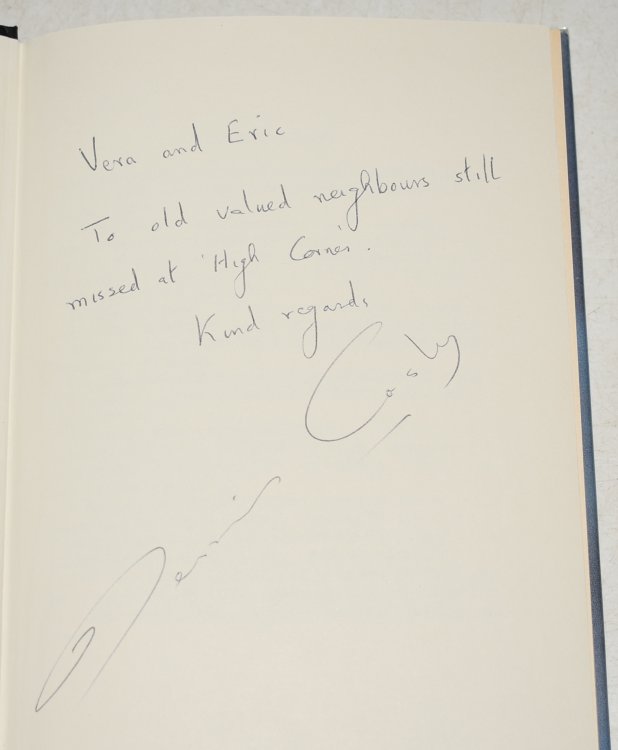 Vera and Eric
To old valued neighbours still
missed at 'High Corner'.
Kind regards
Dennis